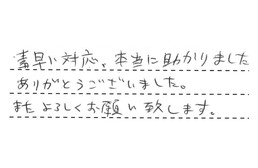 素早い対応、本当に助かりました
ありがとうございました。
またよろしくお願い致します。